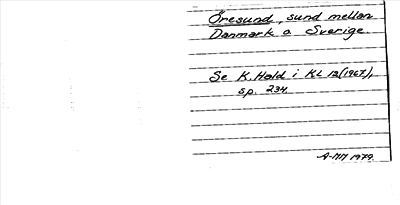 Öresund, sund mellan
Danmark o. Sverige.
Se K. Hald i KL 12 (1967),
sp. 234.
A-MM 1979.